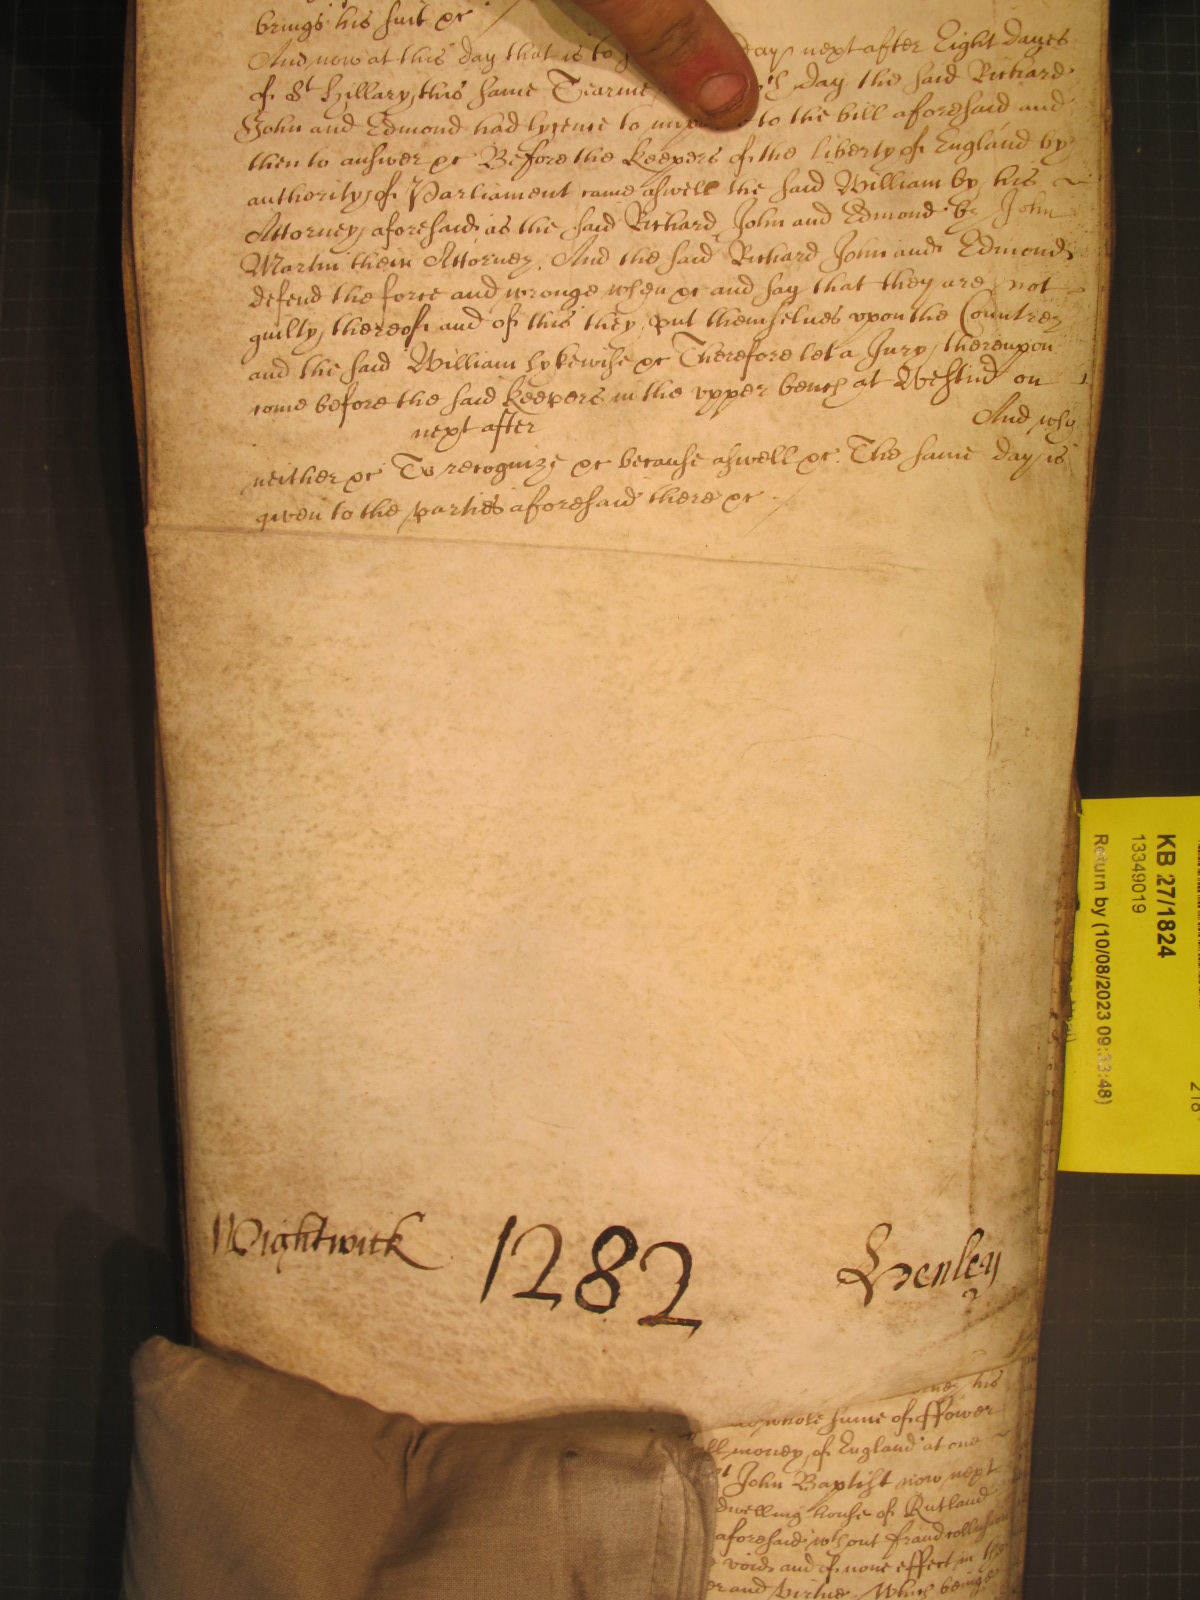 brings his suit &c
And now at this day that is to day next after Eight dayes
of St Hillary this same Tearme day the said Richard
John and Edmond had lycence to to the bill aforesaid and
then to answer &c Before the keepers of the liberty of England by
authority of Parliament came aswell the said William by his
Attorney aforesaid as the said Richard John and Edmond by John
Martin their Attorney. And the said Richard John and Edmond
defend the force and wronge when &c and say that they are not
guilty thereof and of this they put themselves upon the Countrey
and the said William lykewise &c Therefore let a Jury thereupon
come before the said keepers in the upper bench at Westm̃ on
next after And who
neither &c To recognize &c because aswell &c. The same day is
given to the parties aforesaid there &c
Wightwick 1282 Henley
his
summe of ffower
money of England at one
John Baptist now next
dwelling house of Rutland
aforesaid wthout fraud
voide and of none effect in
and virtue. Which being
KB 27/1824
13349019
Return by (10/08/2023 09:33:48)
218